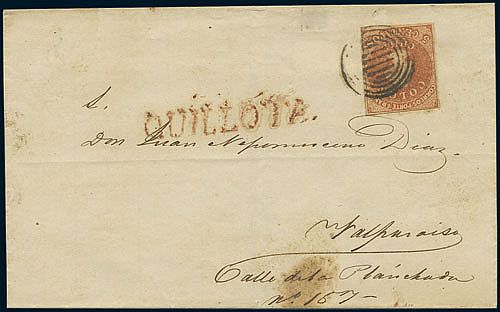 S.
QUILLOTA.
Don Juan Nepomuceno Diaz.
Valparaiso
Calle de la Planchada
nº 167
COLON
CENTAVOS
5